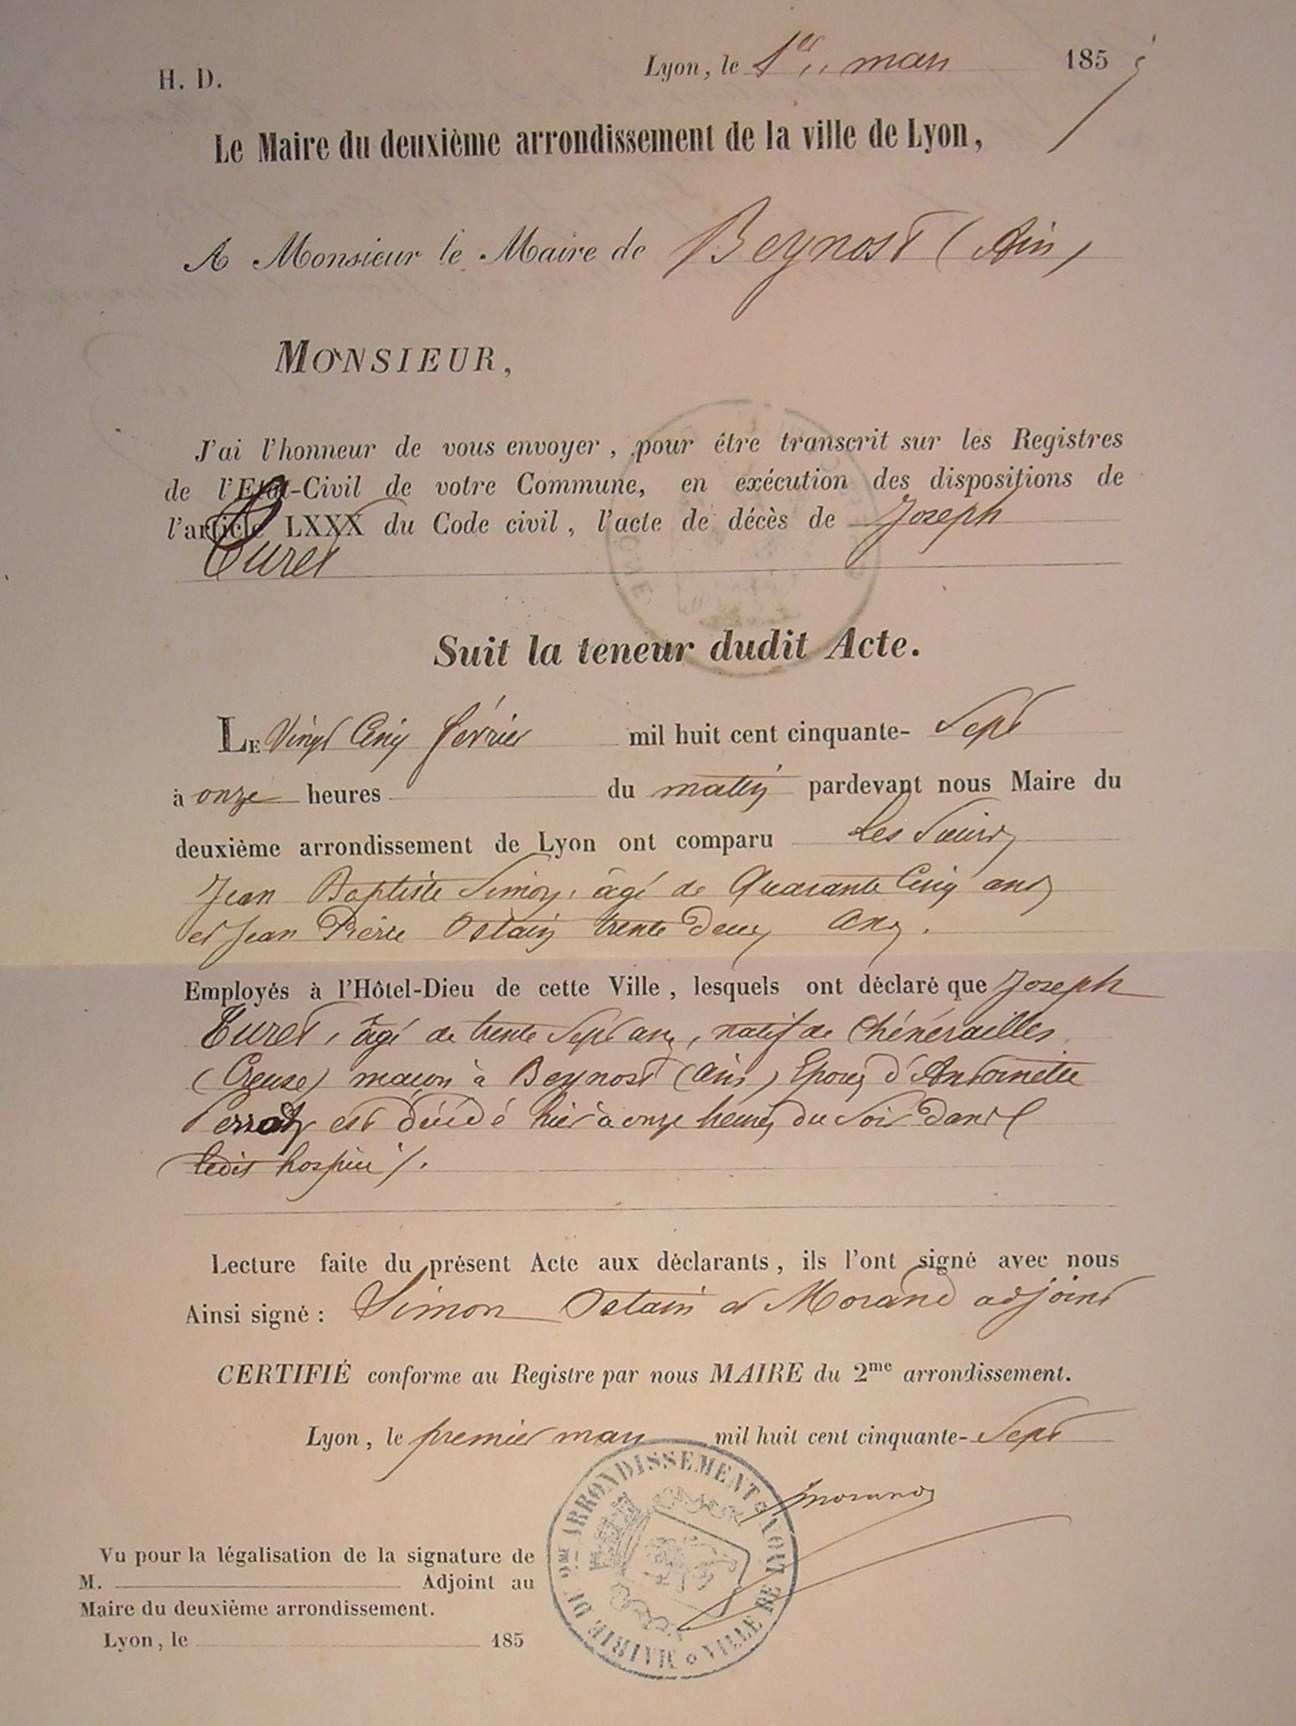 H. D.
Lyon, le 1er mars 1857
Le Maire du deuxième arrondissement de la ville de Lyon,
A Monsieur le Maire de Beynost (Ain)
MONSIEUR,
J'ai l'honneur de vous envoyer, pour être transcrit sur les Registres
de l'Etat-Civil de votre Commune, en exécution des dispositions de
l'article LXXX du Code civil, l'acte de décès de Joseph
Turet
Suit la teneur dudit Acte.
LE Vingt Cinq février mil huit cent cinquante- Sept
à onze heures du matin pardevant nous Maire du
deuxième arrondissement de Lyon ont comparu Les Sieurs
Jean Baptiste Simon, âgé de Quarante Cinq ans
et Jean Pierre Ostain trente Deux ans.
Employés à l'Hôtel-Dieu de cette Ville, lesquels ont déclaré que Joseph
Turet, âgé de trente Sept ans, natif de Chénérailles
(Creuse) maçon à Beynost (Ain) Epoux d'Antoinette
est Décédé hier à onze heures du Soir Dans
ledit hospice /.
Lecture faite du présent Acte aux déclarants, ils l'ont signé avec nous
Ainsi signé : Simon Ostain et Morand adjoint
CERTIFIÉ conforme au Registre par nous MAIRE du 2me arrondissement.
Lyon, le premier mars mil huit cent cinquante- Sept
Morand
MAIRIE DU 2ME ARRONDISSEMENT VILLE DE LYON
Vu pour la légalisation de la signature de
M. Adjoint au
Maire du deuxième arrondissement.
Lyon, le 185